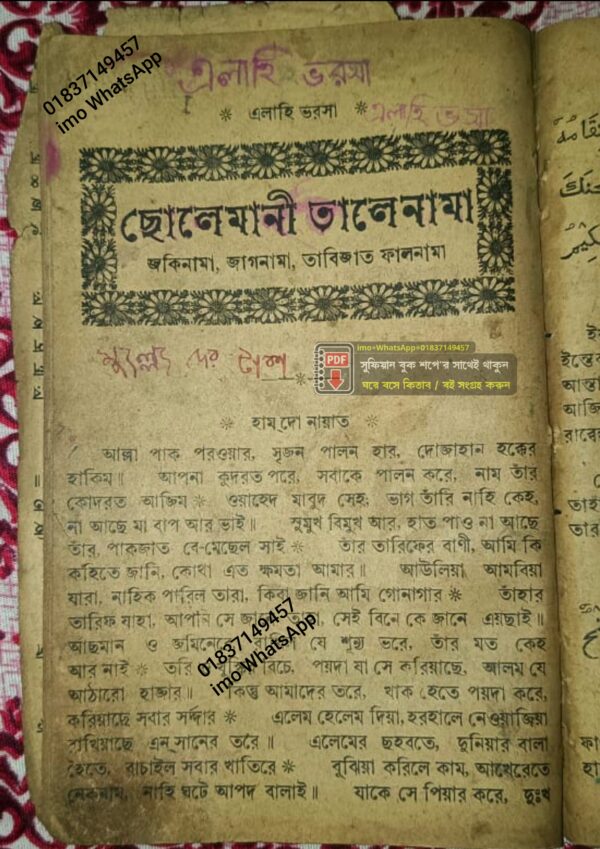 01837149457
imo WhatsApp
এলাহি ভরসা
❊ এলাহি ভরসা ❊
এলাহি ভসা
ছোলেমানী তালেনামা
জকিনামা, জাগনামা, তাবিজাত ফালনামা
imo+WhatsApp+01837149457
PDF
সুফিয়ান বুক শপে'র সাথেই থাকুন
ঘরে বসে কিতাব / বই সংগ্রহ করুন
❊ হামদো নায়াত ❊
আল্লা পাক পরওয়ার, সৃজন পালন হার, দোজাহান হক্কের
হাকিম॥ আপনা কুদরত পরে, সবাকে পালন করে, নাম তাঁর
কোদরত আজিম ❊ ওয়াহেদ মাবুদ সেহ, ভাগ তাঁরি নাহি কেহ,
না আছে মা বাপ আর ভাই॥ সুমুখ বিমুখ আর, হাত পাও না আছে
তাঁর, পাকজাত বে-মেছেল সাই ❊ তাঁর তারিফের বাণী, আমি কি
কহিতে জানি, কোথা এত ক্ষমতা আমার॥ আউলিয়া আমবিয়া
যারা, নাহিক পারিল তারা, কিবা জানি আমি গোনাগার ❊ তাঁহার
তারিফ যাহা, আপনি সে জানে, সেই বিনে কে জানে এয়ছাই॥
আছমান ও জমিনেরে, যে শূন্য ভরে, তাঁর মত কেহ
আর নাই ❊ তরি বিচে, পয়দা যা সে করিয়াছে, আলম যে
আঠারো হাজার॥ কিন্তু আমাদের তরে, খাক হেতে পয়দা করে,
করিয়াছে সবার সর্দ্দার ❊ এলেম হেলেম দিয়া, হরহালে নেওয়াজিয়া
রাখিয়াছে এনসানের তরে॥ এলেমের ছহবতে, দুনিয়ার বালা
হৈতে, বাচাইল সবার খাতিরে ❊ বুঝিয়া করিলে কাম, আখেরেতে
নেকনাম, নাহি ঘটে আপদ বালাই॥ যাকে সে পিয়ার করে, দুঃখ
01837149457
imo WhatsApp